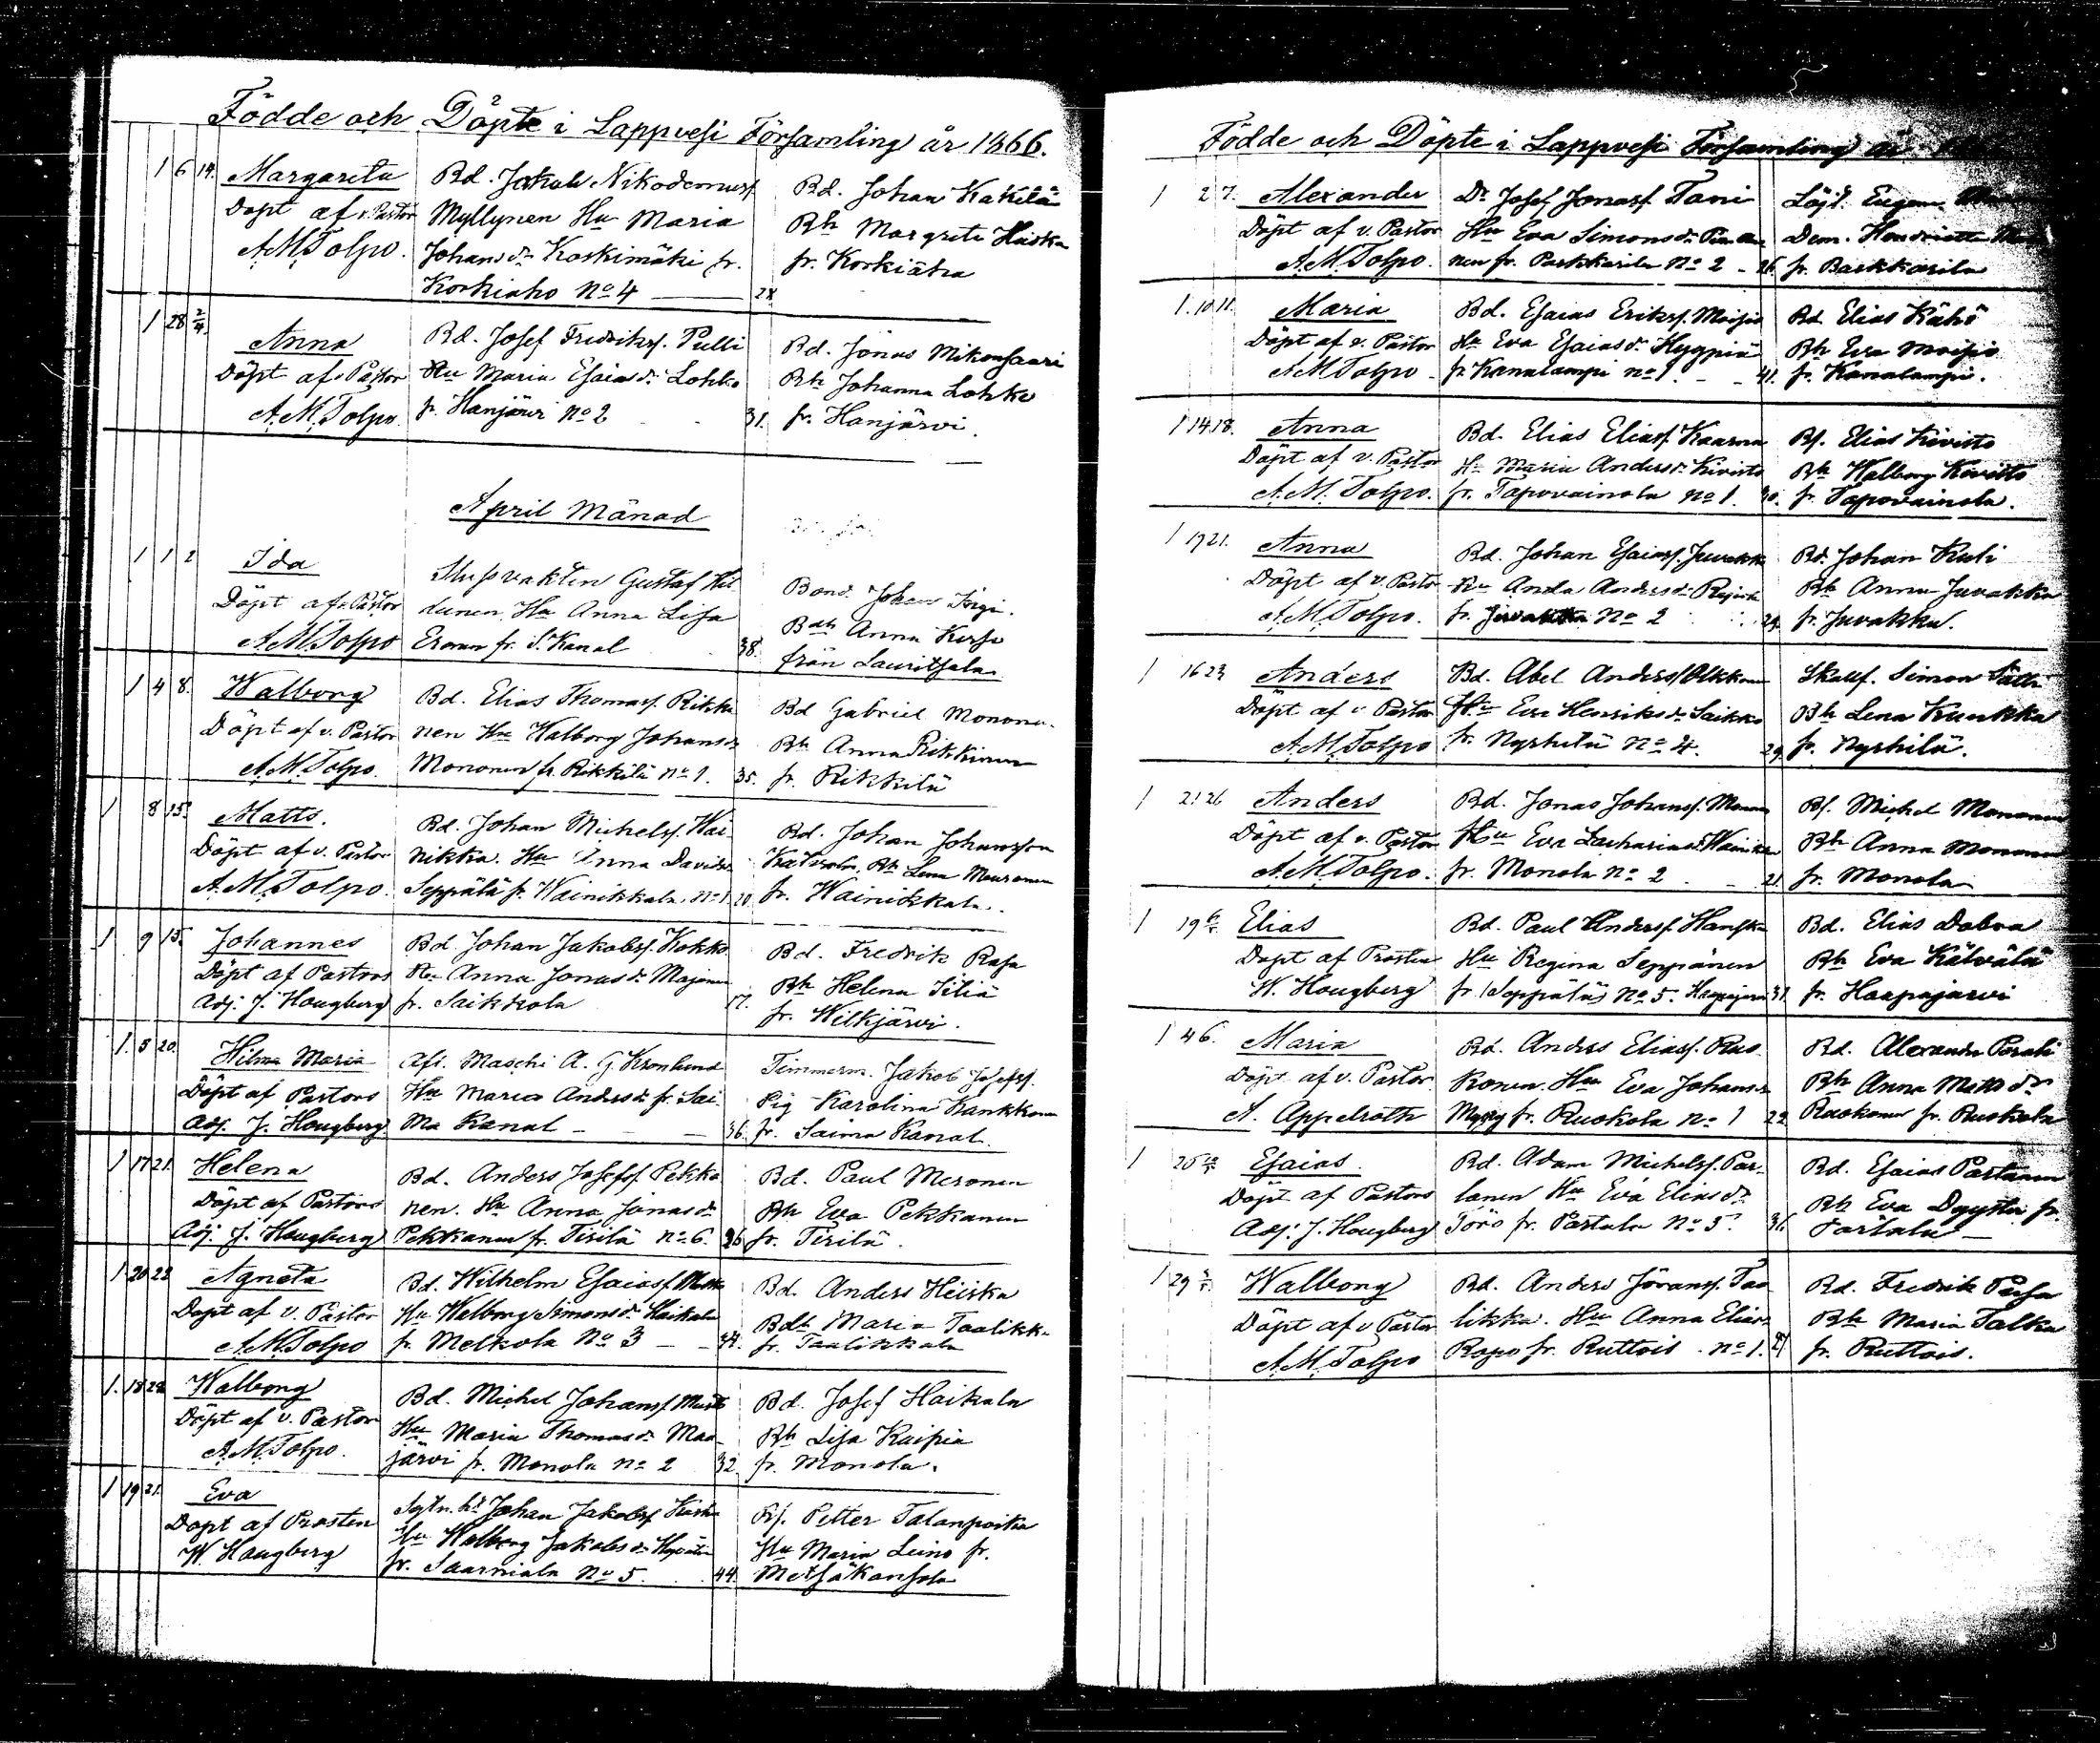 Födde och Döpte i Lappvesi Församling år 1866.
1 6 14. Margareta
Döpt af v. Pastor
A. M. Tolpo.
Bd. Jakob Nikodemusf.
Myllynen Hu Maria
Johansdr Koskimäki fr.
Korkiaho No 4 28.
Bd. Johan Kakilä
Bh Margreta Heiska
fr. Korkiäha
1 28 2/4. Anna
Döpt af v. Pastor
A. M. Tolpo.
Bd. Josef Fredriksf. Pulli
Hu Maria Esaiasdr Lohko
fr. Hanjärvi No 2 31.
Bd. Jonas Mikonsaari
Bh Johanna Lohko
fr. Hanjärvi.
April Månad
1 1 2 Ida
Döpt af v. Pastor
A. M. Tolpo
Slussvakten Gustaf
Hu Anna Lisa
fr. S. Kanal 38.
Bond. Johan
Bdh Anna
från Lauritsala
1 4 8. Walborg
Döpt af v. Pastor
A. M. Tolpo.
Bd. Elias Thomasf. Rikki
nen Hu Walborg Johansdr
Mononen fr. Rikkilä No 1. 35.
Bd Gabriel Mononen
Bh Anna Rikkinen
fr. Rikkilä
1 8 15. Matts.
Döpt af v. Pastor
A. M. Tolpo.
Bd. Johan Michelsf. Wai
nikka. Hu Anna Davidsdr
Seppälä fr. Wainikkala No 1. 20.
Bd. Johan Johansson
Bh Lena
fr. Wainikkala.
1 9 15. Johannes
Döpt af Pastors
Adj. J. Hougberg
Bd. Johan Jakobsf. Kokko
Hu Anna Jonasdr
fr. Saikkola 17.
Bd. Fredrik Rasa
Bh Helena Siliä
fr. Wilkjärvi.
1. 5 20. Hilma Maria
Döpt af Pastors
Adj. J. Hougberg
Maschi A. G. Kronlund
Hu Maria Andersdr fr. Sai
ma Kanal 36.
Timmerm. Jakob Josefsf.
Pig Karolina Kankkonen
fr. Saima Kanal.
1 17 21. Helena
Döpt af Pastors
Adj. J. Hougberg
Bd. Anders Josefsf. Pekka
nen. Hu Anna Jonasdr
Pekkanen fr. Tirilä No 6. 26
Bd. Paul Meronen
Bh Eva Pekkanen
fr. Tirilä.
1 20 22 Agneta
Döpt af v. Pastor
A. M. Tolpo
Bd. Wilhelm Esaiasf.
Hu Walborg Simonsdr Haikala
fr. Melkola No 3 34.
Bd. Anders Heiska
Bdh Maria Taalikka
fr. Taalikkala
1. 18 22 Walborg
Döpt af v. Pastor
A. M. Tolpo.
Bd. Michel Johansf.
Hu Maria Thomasdr Maa
järvi fr. Monola No 2 32
Bd. Josef Haikala
Bh Lisa Kaipia
fr. Monola.
1 19 21. Eva
Döpt af Prosten
W. Hougberg
Johan Jakobsf.
Hu Walborg Jakobsdr
fr. Saarniala No 5. 44.
Petter Talanpoika
Hu Maria Leino fr.
Metsäkansola
Födde och Döpte i Lappvesi Församling år
1 2 7. Alexander
Döpt af v. Pastor
A. M. Tolpo.
Dr Josef Jonasf. Tani
Hu Eva Simonsdr
nen fr. Parkkarila No 2 26.
Löjt. Eugene
Dem. Hendriette
fr. Parkkarila
1. 10 11. Maria
Döpt af v. Pastor
A. M. Tolpo
Bd. Esaias Eriksf. Moisio
Hu Eva Esaiasdr Hyypiä
fr. Kanalampi No 1. 41.
Bd Elias Kähö
Bh Eva Moisio
fr. Kanalampi.
1 14 18. Anna
Döpt af v. Pastor
A. M. Tolpo.
Bd. Elias Eliasf. Kaarna
Hu Maria Andersdr Kivisto
fr. Tapovainola No 1. 30.
Bf. Elias Kivisto
Bh Walborg Kivisto
fr. Tapovainola.
1 19 21. Anna
Döpt af v. Pastor
A. M. Tolpo.
Bd. Johan Esaiasf. Juvakka
Hu Anna Andersdr
fr. Juvakka No 2 29.
Bd. Johan Kuli
Bh Anna Juvakka
fr. Juvakka.
1 16 23 Anders
Döpt af v. Pastor
A. M. Tolpo
Bd. Abel Andersf. Olkkonen
Hu Eva Henriksdr Saikko
fr. Nyrhilä No 4. 29.
Skallf. Simon
Bh Lena Kunkka
fr. Nyrhilä.
1 21 26 Anders
Döpt af v. Pastor
A. M. Tolpo.
Bd. Jonas Johansf. Monon
Hu Eva Zachariasdr
fr. Monola No 2 21.
Bf. Michel Mononen
Bh Anna Mononen
fr. Monola
1 19 6/5. Elias
Döpt af Prosten
W. Hougberg
Bd. Paul Andersf. Hanska
Hu Regina Seppänen
fr. Seppälä No 5. Haapajärvi 31.
Bd. Elias Dabva
Bh Eva Kälvälä
fr. Haapajärvi
1 4 6. Maria
Döpt af v. Pastor
A. Appelroth
Bd. Anders Eliasf. Ruo
konen. Hu Eva Johansdr
fr. Ruokola No 1 22.
Bd. Alexander
Bh Anna Mattsdr
Ruokonen fr. Ruokola
1 Esaias.
Döpt af Pastors
Adj. J. Hougberg
Bd. Adam Michelsf. Par
tanen Hu Eva Eliasdr
Törö fr. Partala No 5. 36.
Bd. Esaias Partanen
Bh Eva fr.
Partala
1 29 Walborg
Döpt af v. Pastor
A. M. Tolpo
Bd. Anders Göransf. Taa
likka. Hu Anna Eliasdr
Ropo fr. Ruttois No 1. 27.
Bd. Fredrik
Bh Maria Talka
fr. Ruttois.